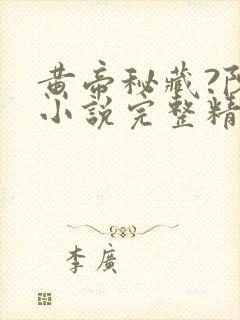 黄帝秘藏?阝
小說完整精
李廣